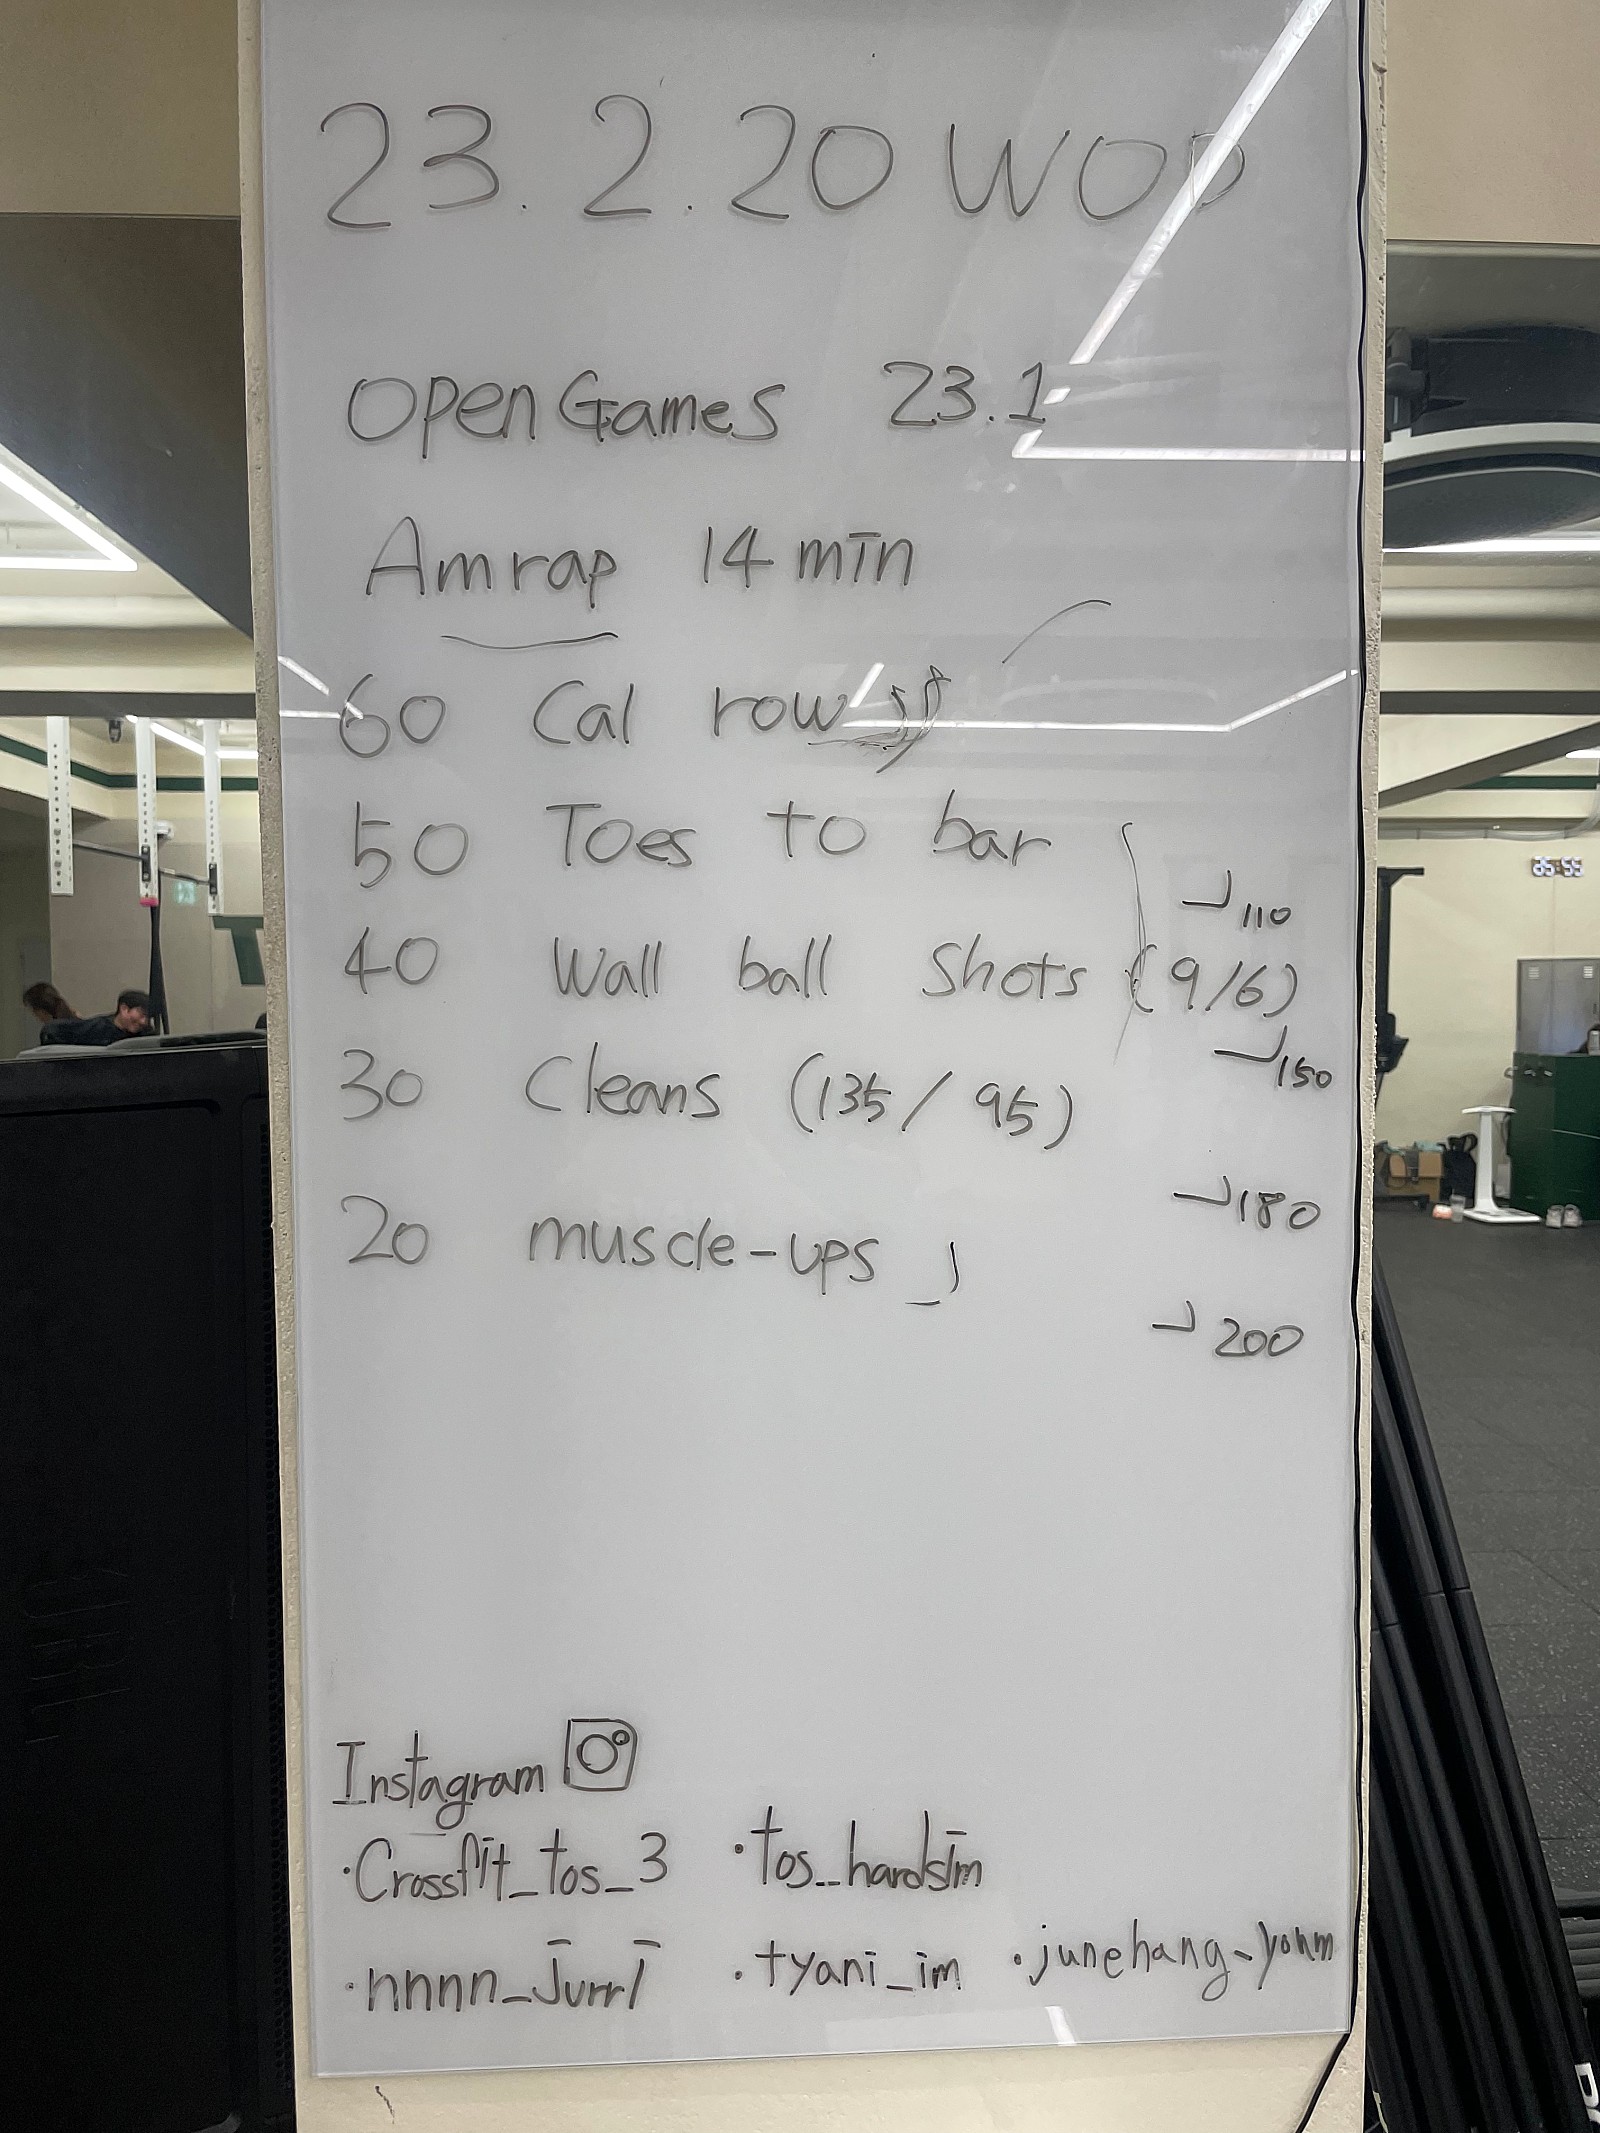 23. 2. 20 WOD
Open Games 23.1
Amrap 14 min
60 Cal row
50 Toes to bar
110
40 Wall ball shots (9/6)
150
30 Cleans (135/95)
180
20 muscle-ups
200
Instagram
·Crossfit_tos_3 ·tos_hardsim
·nnnn_Jurrl ·tyani_im ·junehang_yohm
85:55